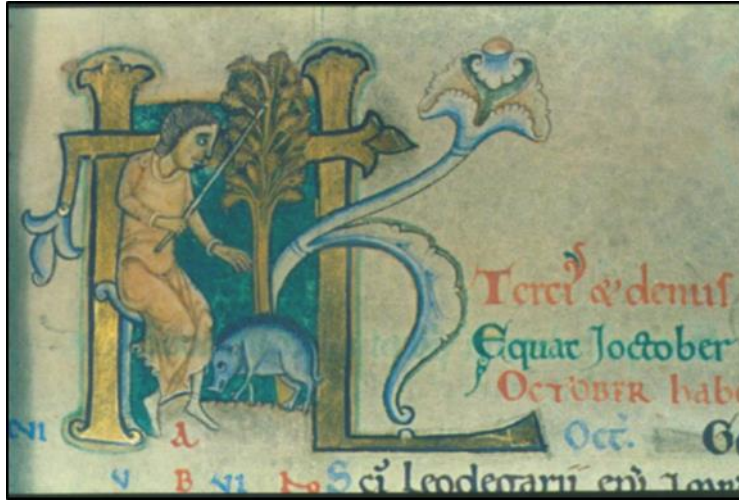 KL
Terci' & denus
Equat Joctober
OCTOBER habe
NI A Oct.
V B VI S cī Leodegarii epī